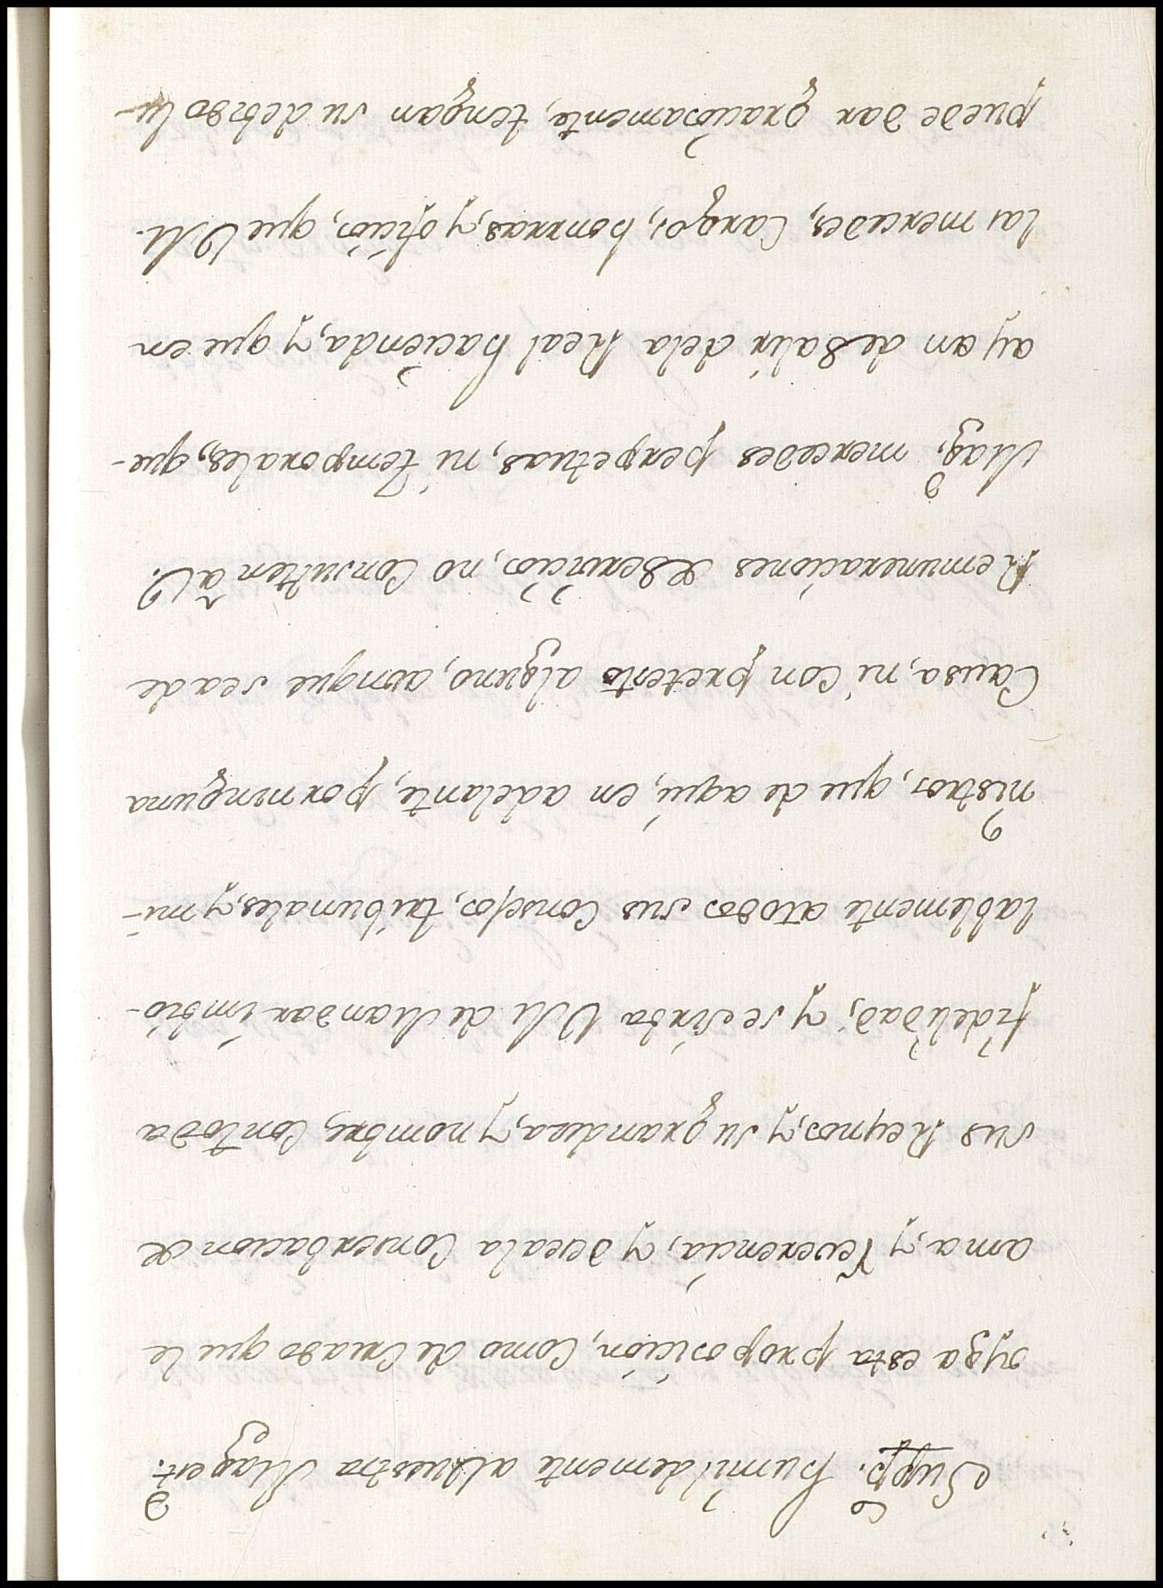 Supp.co humildemente aVuestra Magest.d
oyga esta proposición, Como de Criado que le
ama, y Reverencia, y desea la Conserbacion de
sus Reynos, y su grandeza, y nombre, Contoda
fidelidad, y se sirba VM de Mandar imbio-
lablemente atodos sus Consejos, tribunales, y mi-
nistros, que de aqui, en adelante, por ninguna
Causa, ni Con pretexto alguno, aunque sea de
Remuneraciones de servicios, no Consulten à V.
Mag.d mercedes perpetuas, ni temporales, que-
ayan de Salir dela Real hacienda, y que en
las mercedes, Cargos, honrras, y oficios, que VM.
puede dar graciosamente, tengan su debido lu-